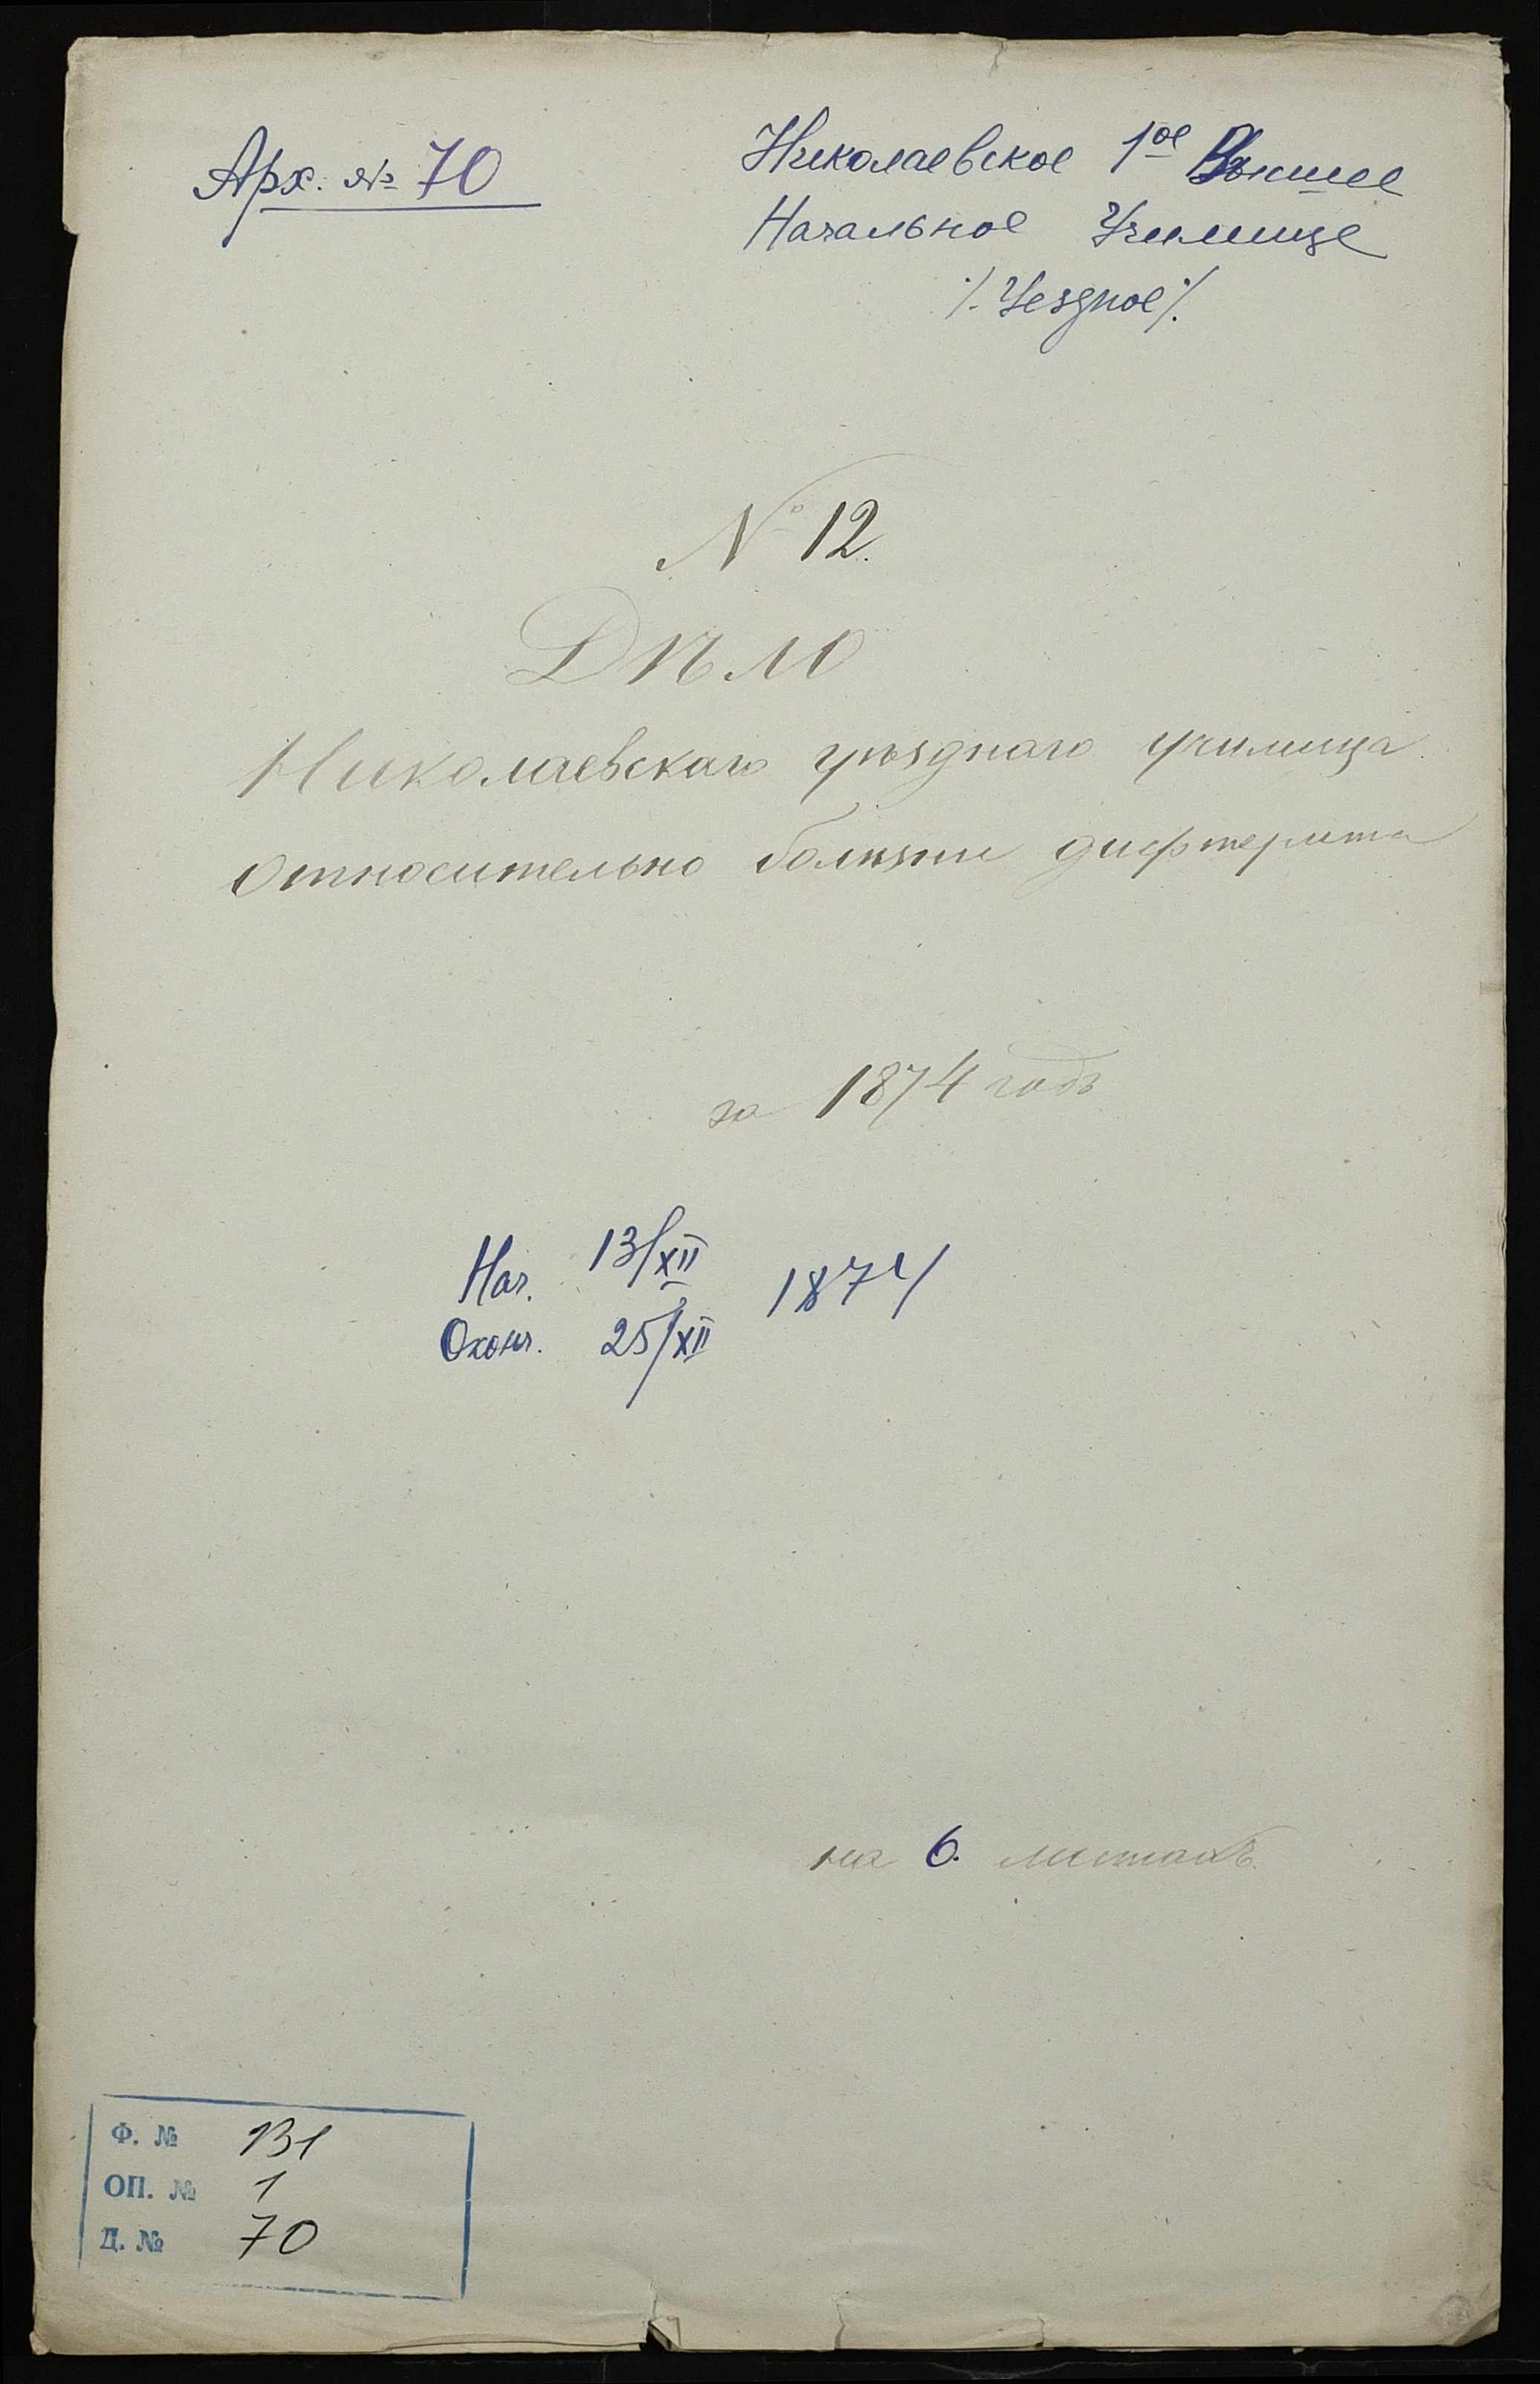 Арх. № 70
Николаевское 1ое Высшее
Начальное Училище
/. Уездное /.
№ 12.
Дѣло
Николаевскаго уѣзднаго училища
относительно болѣзни дифтерита
за 1874 годъ
Нач. 13/XII 1874
Оконч. 25/XII
на 6. листахъ.
Ф. № 131
ОП. № 1
Д. № 70